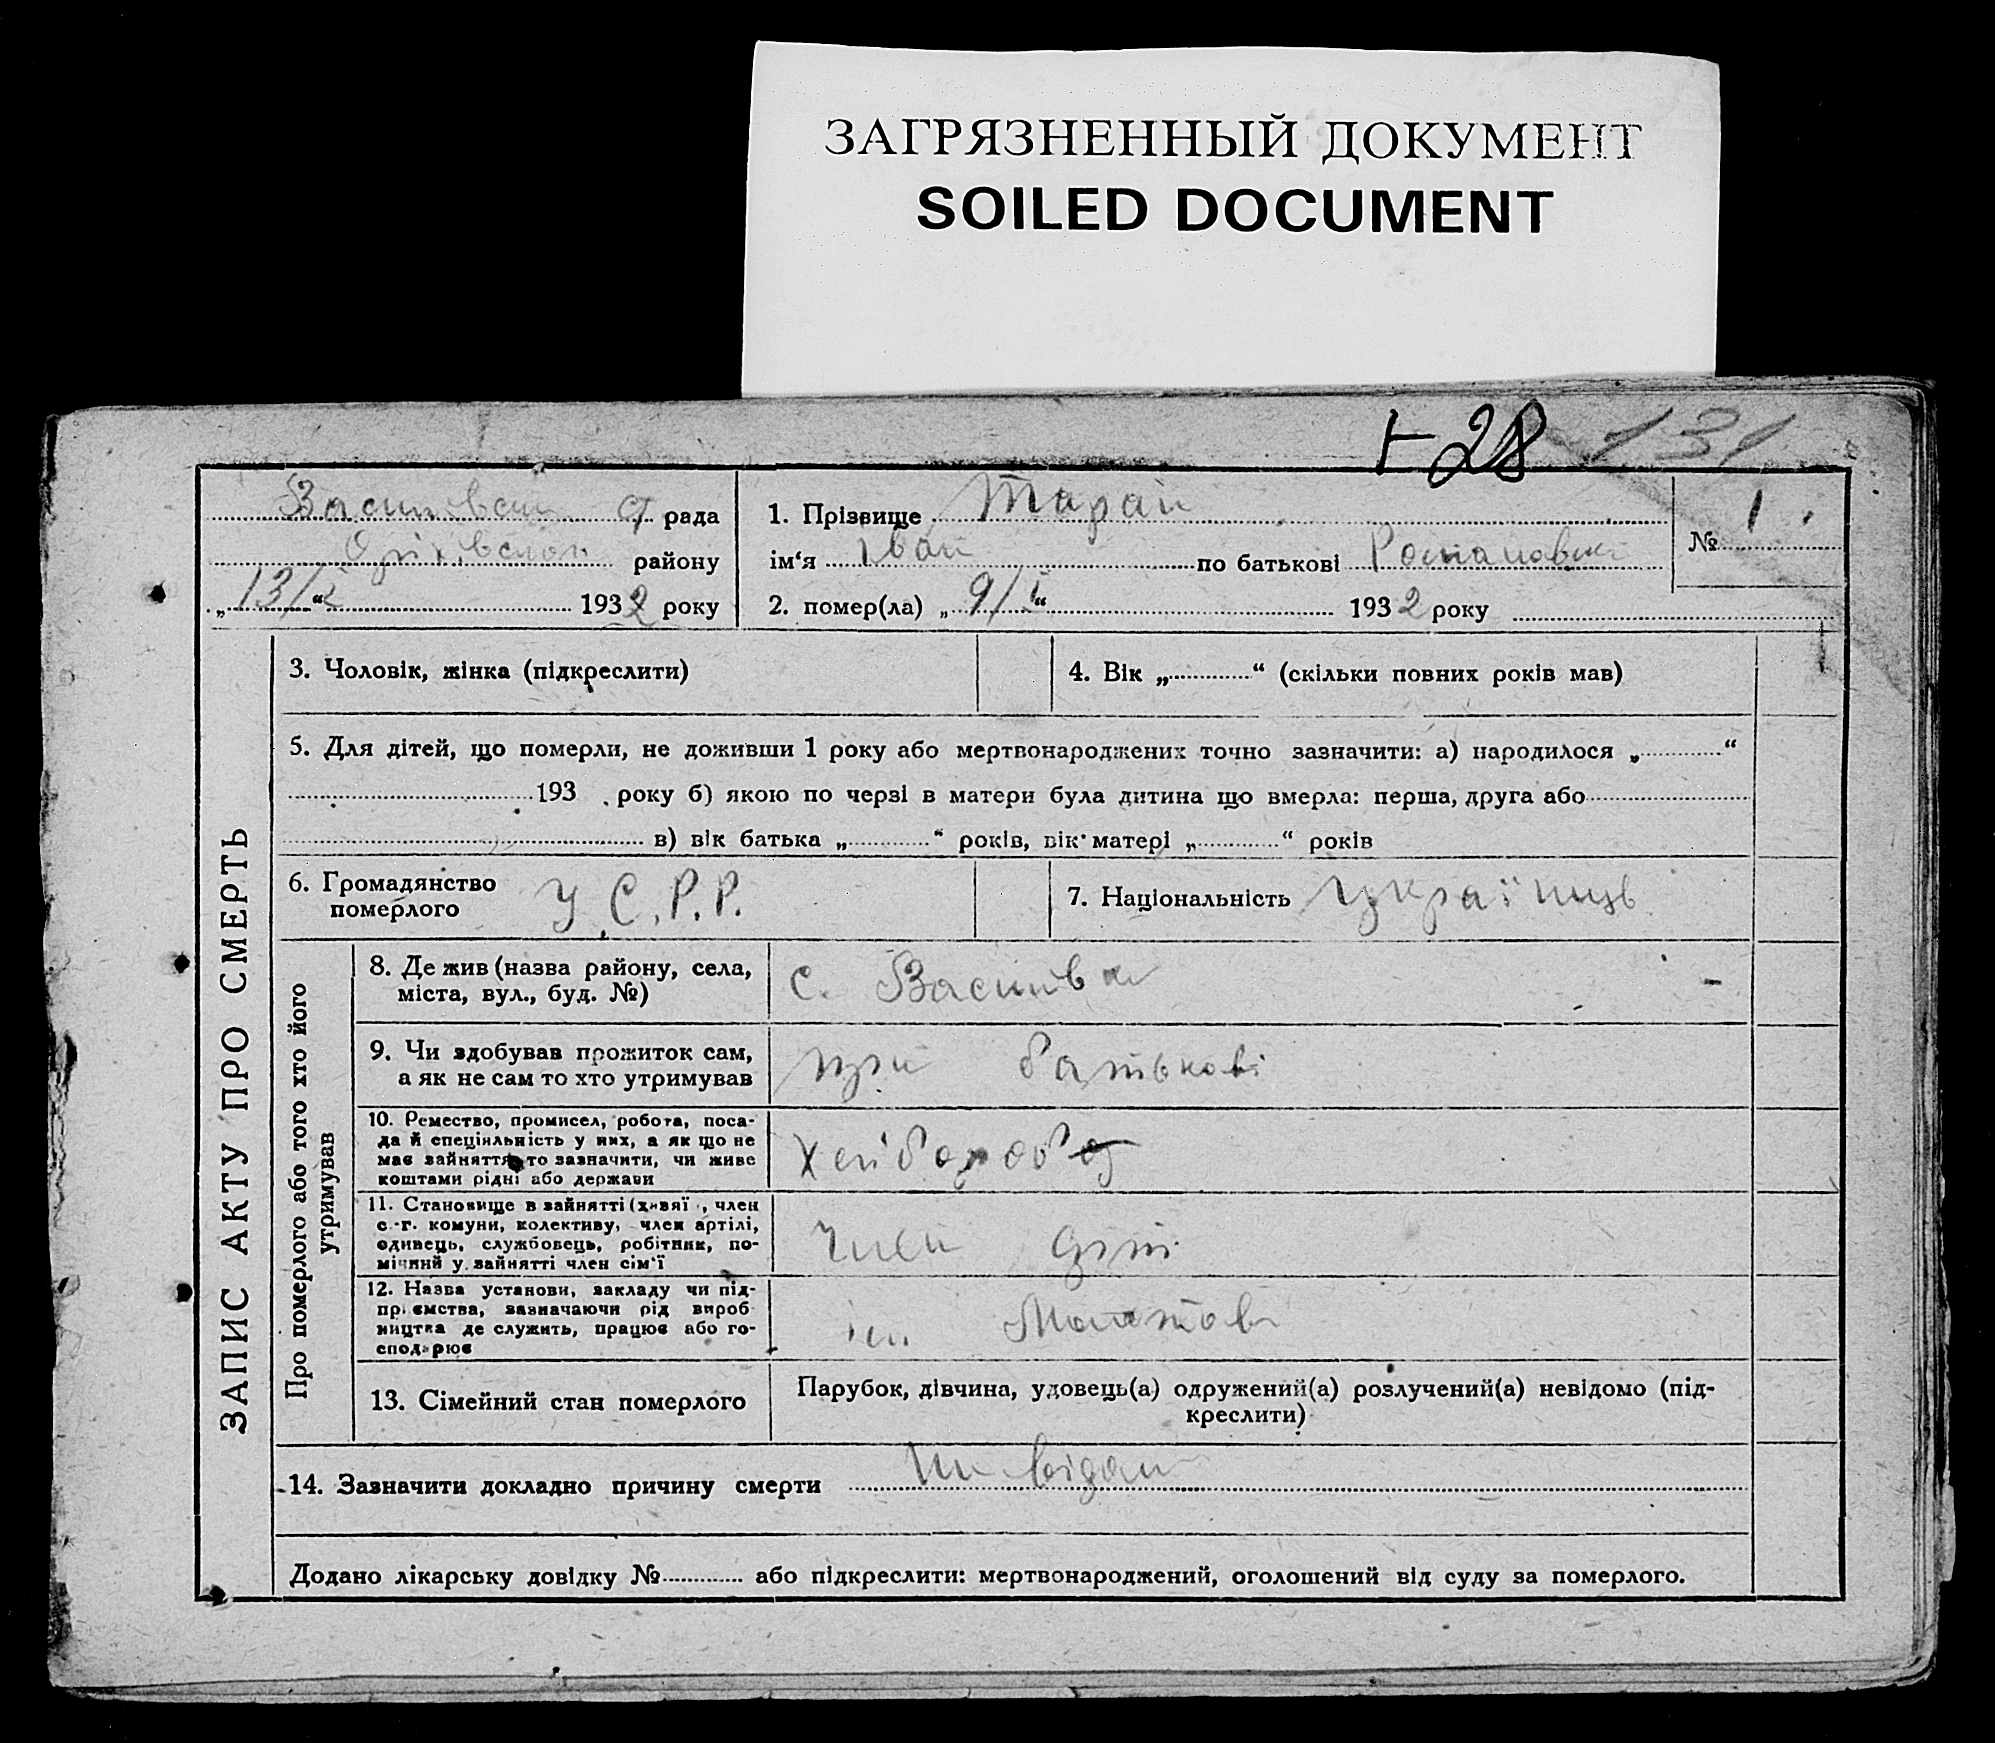 ЗАГРЯЗНЕННЫЙ ДОКУМЕНТ
SOILED DOCUMENT
28 131
рада
району
„13/I“ 1932 року
1. Прізвище Таран
ім‘я Іван по батькові Романович
2. помер(ла) „9/I“ 1932 року
№ 1
ЗАПИС АКТУ ПРО СМЕРТЬ
3. Чоловік, жінка (підкреслити)
4. Вік „ “ (скільки повних років мав)
5. Для дітей, що померли, не доживши 1 року або мертвонароджених точно зазначити: а) народилося „ “
193 . року б) якою по черзі в матери була дитина що вмерла: перша, друга або
в) вік батька „ “ років, вік матері „ “ років
6. Громадянство
померлого У.С.Р.Р.
7. Національність Українць
Про померлого або того хто його
утримував
8. Де жив (назва району, села,
міста, вул., буд. №) с. Василівка
9. Чи здобував прожиток сам,
а як не сам то хто утримував при батькові
10. Ремество, промисел, робота, поса-
да й спеціяльність у них, а як що не
має зайняття то зазначити, чи живе
коштами рідні або держави Хлібороб
11. Становище в зайнятті (хазяї , член
с.-г. комуни, колективу, член артілі,
одинець, службовець, робітник, по-
мічний у зайнятті член сім‘ї Член
12. Назва установи, закладу чи під-
приємства, зазначаючи рід вироб
ництва де служить, працює або го-
сподарює ім. Молотова
13. Сімейний стан померлого
Парубок, дівчина, удовець(а) одружений(а) розлучений(а) невідомо (під-
креслити)
14. Зазначити докладно причину смерти
Додано лікарську довідку № або підкреслити: мертвонароджений, оголошений від суду за померлого.